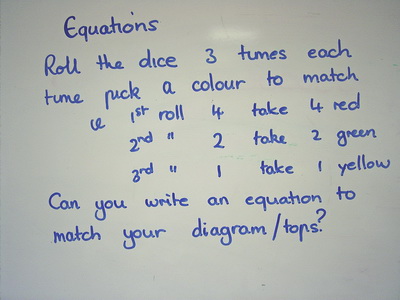 Equations
Roll the dice 3 times each
time pick a colour to match
ie 1st roll 4 take 4 red
2nd " 2 take 2 green
3rd " 1 take 1 yellow
Can you write an equation to
match your diagram/tops?